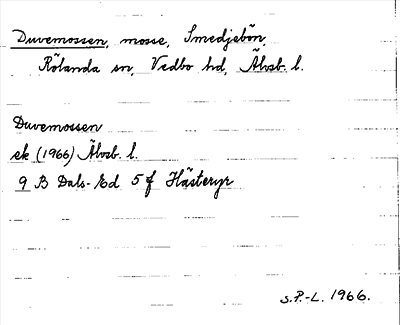 Duvemossen, mosse, Smedjebön,
Rölanda sn, Vedbo hd, Älvsb. l.
Duvemossen
ek (1966) Älvsb. l.
9 B Dals-Ed 5 f Hästeryr
S.P.-L. 1966.